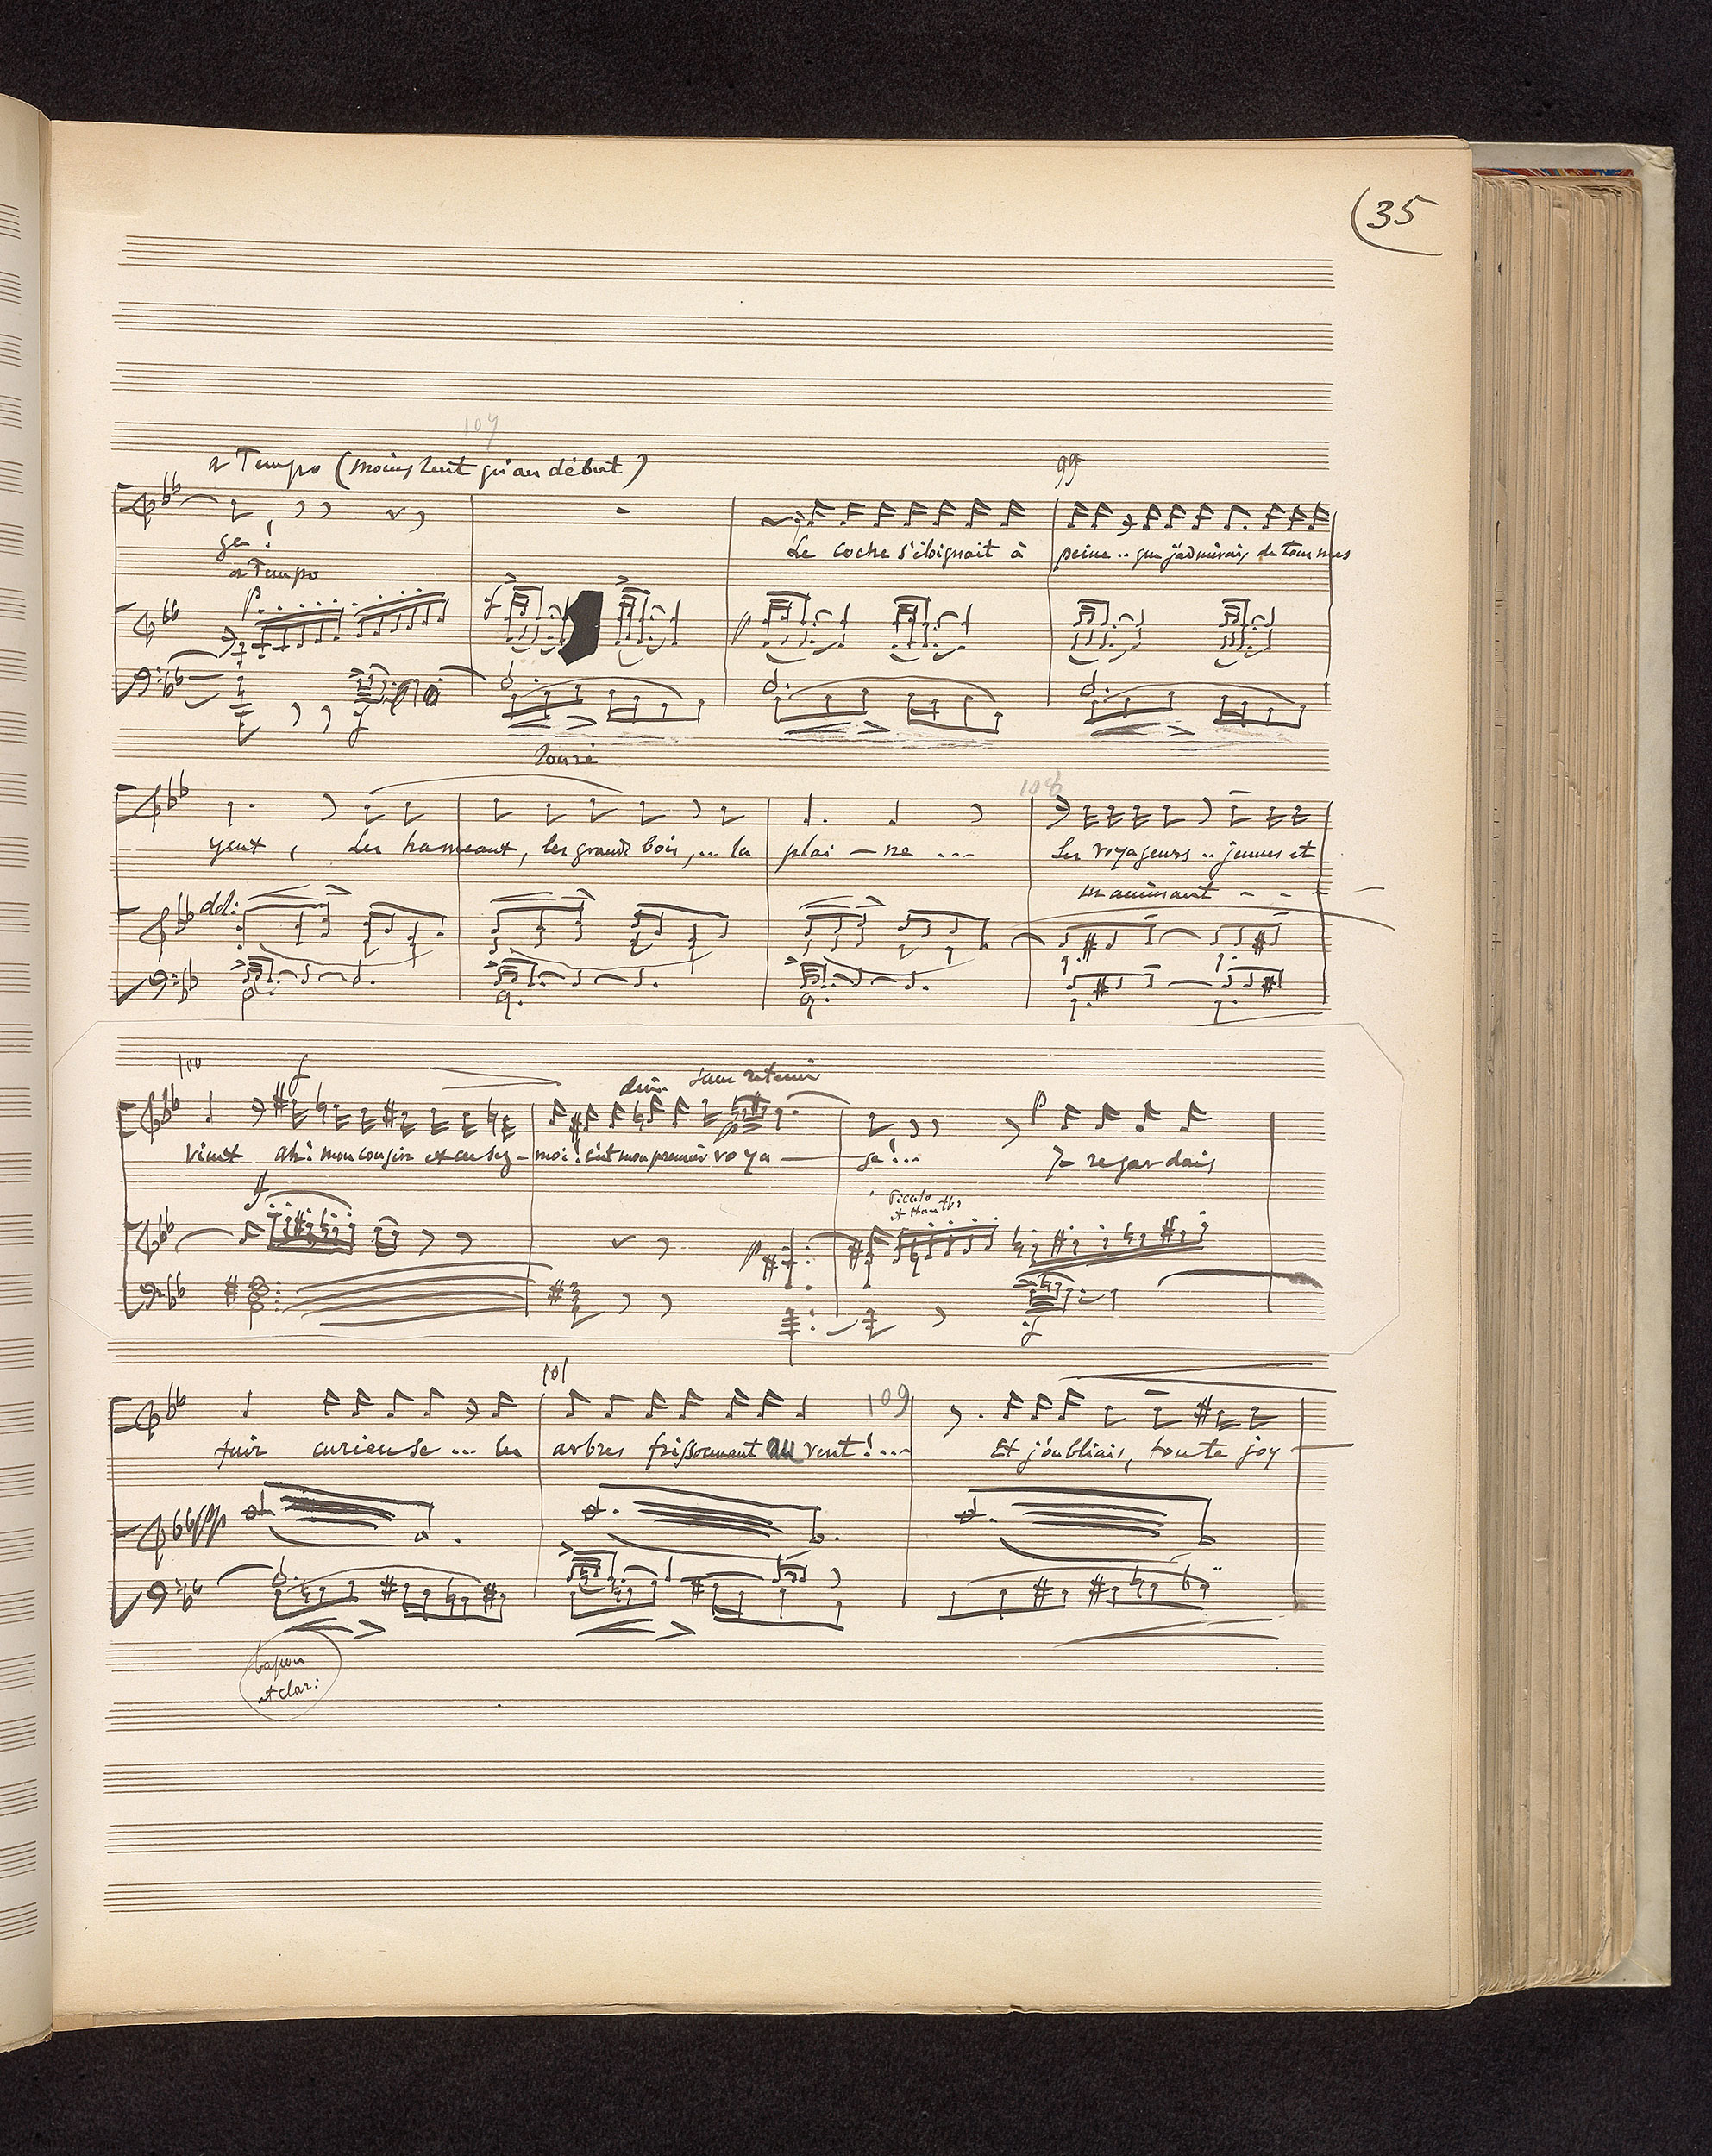 35
107
a Tempo (moins lent qu'au début)
99
ge!
Le coche s'éloignait à peine .. que j'admirais de tous mes
a Tempo
p
f
p
f
louré
108
yeux, Les hameaux, les grands bois,... la plai - ne ...
Les voyageurs .. jeunes et
en animant - - -
dd:
100
f
dim. sans retenir
p
vieux ah! mon cousin excusez-moi! c'est mon premier voya - ge!...
Je regardais
f
Piccolo
et Hautb:
p
f
101
109
fuir curieuse ... les arbres frissonnant au vent!...
Et j'oubliais, toute joy -
pp
basson
et clar: